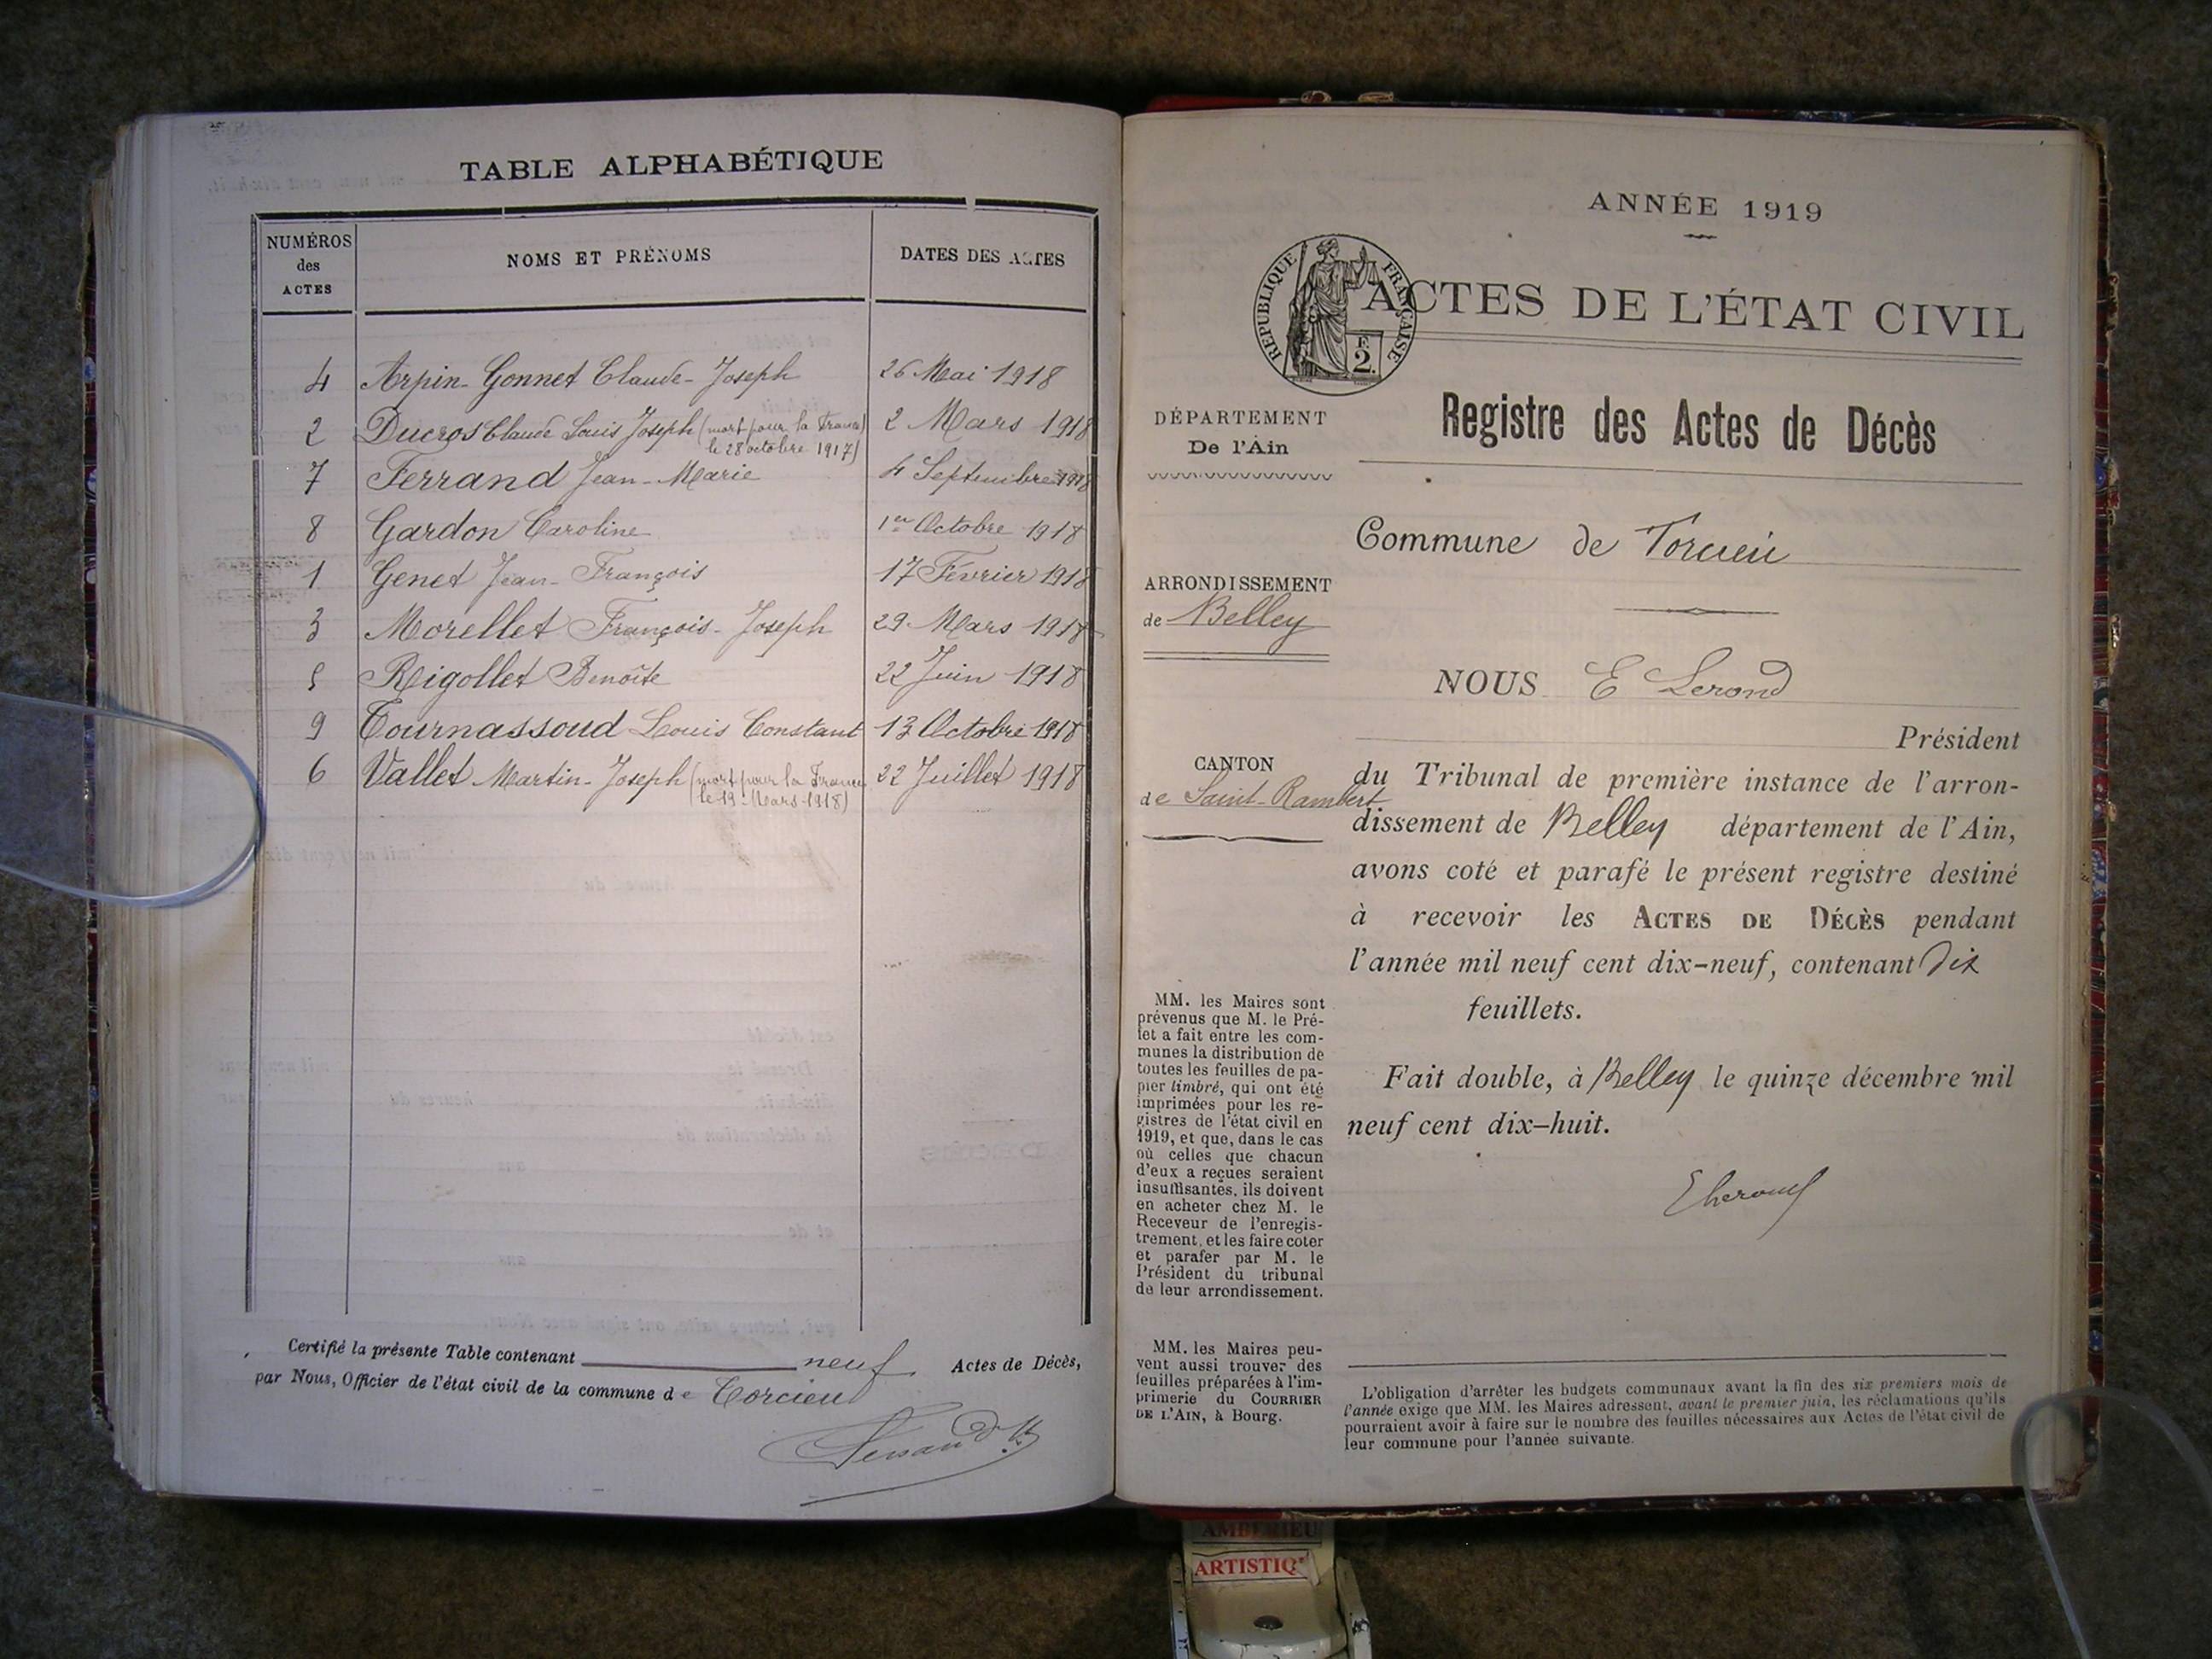 TABLE ALPHABÉTIQUE
NUMÉROS
des
ACTES
NOMS ET PRÉNOMS
DATES DES ACTES
4 Arpin-Gonnet Claude-Joseph 26 Mai 1918
2 Ducros Claude Louis Joseph (mort pour la France 2 Mars 1918
le 28 octobre 1917)
7 Ferrand Jean-Marie 4 Septembre 1918
8 Gardon Caroline 1er Octobre 1918
1 Genet Jean-François 17 Février 1918
3 Morellet François-Joseph 29 Mars 1918
5 Rigollet Benoîte 22 Juin 1918
9 Tournassoud Louis Constant 13 Octobre 1918
6 Vallet Martin-Joseph (mort pour la France 22 Juillet 1918
le 19 Mars 1918)
Certifié la présente Table contenant neuf Actes de Décès,
par Nous, Officier de l'état civil de la commune de Torcieu
ANNÉE 1919
RÉPUBLIQUE FRANÇAISE
2.
ACTES DE L'ÉTAT CIVIL
Registre des Actes de Décès
DÉPARTEMENT
De l'Ain
Commune de Torcieu
ARRONDISSEMENT
de Belley
NOUS E Lerond
Président
CANTON
de Saint-Rambert
du Tribunal de première instance de l'arron-
dissement de Belley département de l'Ain,
avons coté et parafé le présent registre destiné
à recevoir les ACTES DE DÉCÈS pendant
l'année mil neuf cent dix-neuf, contenant Dix
feuillets.
Fait double, à Belley le quinze décembre mil
neuf cent dix-huit.
MM. les Maires sont
prévenus que M. le Pré-
fet a fait entre les com-
munes la distribution de
toutes les feuilles de pa-
pier timbré, qui ont été
imprimées pour les re-
gistres de l'état civil en
1919, et que, dans le cas
où celles que chacun
d'eux a reçues seraient
insuffisantes, ils doivent
en acheter chez M. le
Receveur de l'enregis-
trement, et les faire coter
et parafer par M. le
Président du tribunal
de leur arrondissement.
MM. les Maires peu-
vent aussi trouver des
feuilles préparées à l'im-
primerie du COURRIER
DE L'AIN, à Bourg.
L'obligation d'arrêter les budgets communaux avant la fin des six premiers mois de
l'année exige que MM. les Maires adressent, avant le premier juin, les réclamations qu'ils
pourraient avoir à faire sur le nombre des feuilles nécessaires aux Actes de l'état civil de
leur commune pour l'année suivante.
AMBERIEU
ARTISTIQ